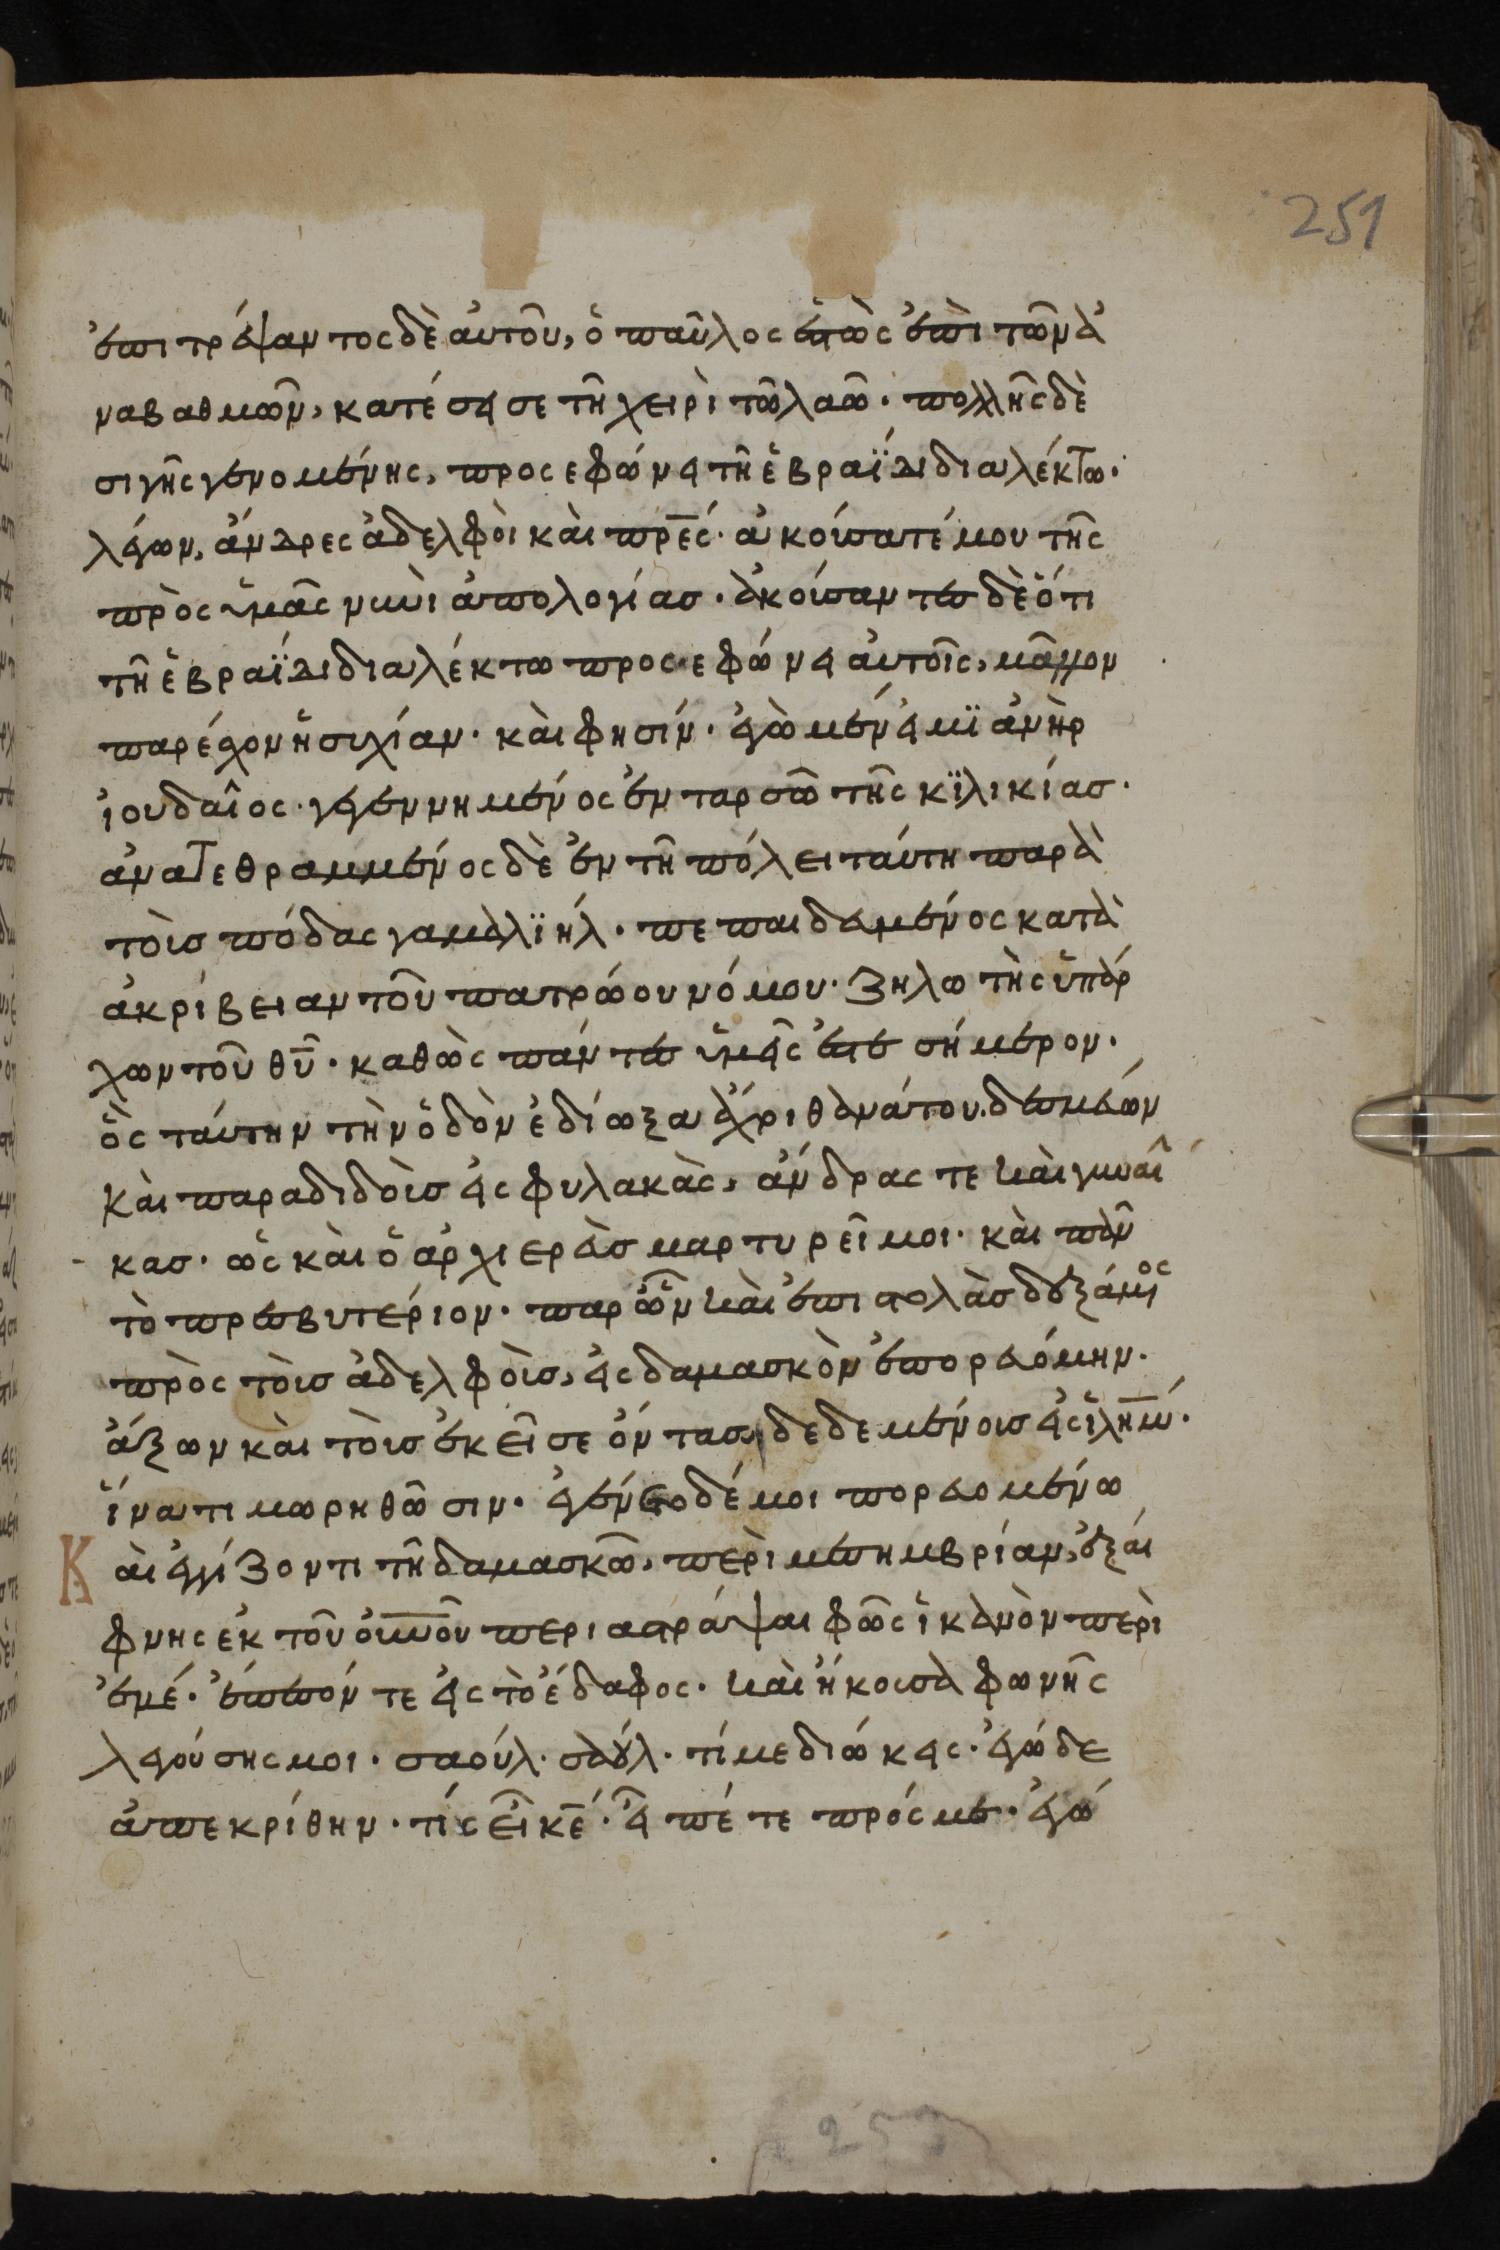 251
ἐπιτρέψαντος δὲ ἀυτοῦ, ὁ παῦλος ἑστὼς ἐπὶ τῶν ἀ
ναβαθμῶν, κατέσεισε τῆ χειρὶ τῶ λαῶ· πολλῆς δὲ
σιγῆς γενομένης, προσεφώνει τῆ ἑβραΐδι διαλέκτω·
λέγων, ἄνδρες ἀδελφοὶ καὶ πρ̅ε̅ς· ἀκούσατέ μου τῆς
πρὸς ὑμᾶς νυνὶ ἀπολογίας· ἀκούσαντες δὲ ὅτι
τῆ ἑβραΐδι διαλέκτω προσεφώνει ἀυτοῖς, μᾶλλον
παρέσχον ἡσυχίαν· καὶ φησίν· ἐγὼ μέν εἰμϊ ἀνὴρ
ἰουδαῖος· γεγεννημένος ἐν ταρσῶ τῆς κϊλικίας·
ἀνατεθραμμένος δὲ ἐν τῆ πόλει ταύτη παρὰ
τοὺς πόδας γαμαλϊήλ· πεπαιδευμένος κατὰ
ἀκρίβειαν τοῦ πατρώου νόμου· ζηλωτὴς ὑπάρ
χων τοῦ θ̅υ̅· καθὼς πάντες ὑμεῖς ἐστε σήμερον·
ὃς ταύτην τὴν ὁδὸν ἐδίωξα ἄχρι θανάτου. δεσμεύων
καὶ παραδιδοὺς εἰς φυλακὰς, ἄνδρας τε καὶ γυναῖ
κας· ὡς καὶ ὁ ἀρχιερεὺς μαρτυρεῖ μοι· καὶ πᾶν
τὸ πρεσβυτέριον· παρ ὧν καὶ ἐπιστολὰς δεξάμενος
πρὸς τοὺς ἀδελφοὺς, εἰς δαμασκὸν ἐπορευόμην·
ἄξων καὶ τοὺς ἐκεῖσε ὄντας, δεδεμένους εἰς ἱλη̅μ̅·
ἵνα τιμωρηθῶσιν· ἐγένετο δέ μοι πορευομένω
Καὶ ἐγγίζοντι τῆ δαμασκῶ, περὶ μεσημβρίαν, ἐξαί
φνης ἐκ τοῦ ὀυ̅ν̅οῦ περιαστράψαι φῶς ἱκανὸν περὶ
ἐμέ· ἔπεσόν τε εἰς τὸ ἔδαφος· καὶ ἤκουσα φωνῆς
λεγούσης μοι· σαούλ· σαούλ· τί με διώκεις· ἐγώ δε
ἀπεκρίθην· τίς εἶ κ̅ε̅· εἶπέ τε πρός με· ἐγώ
253